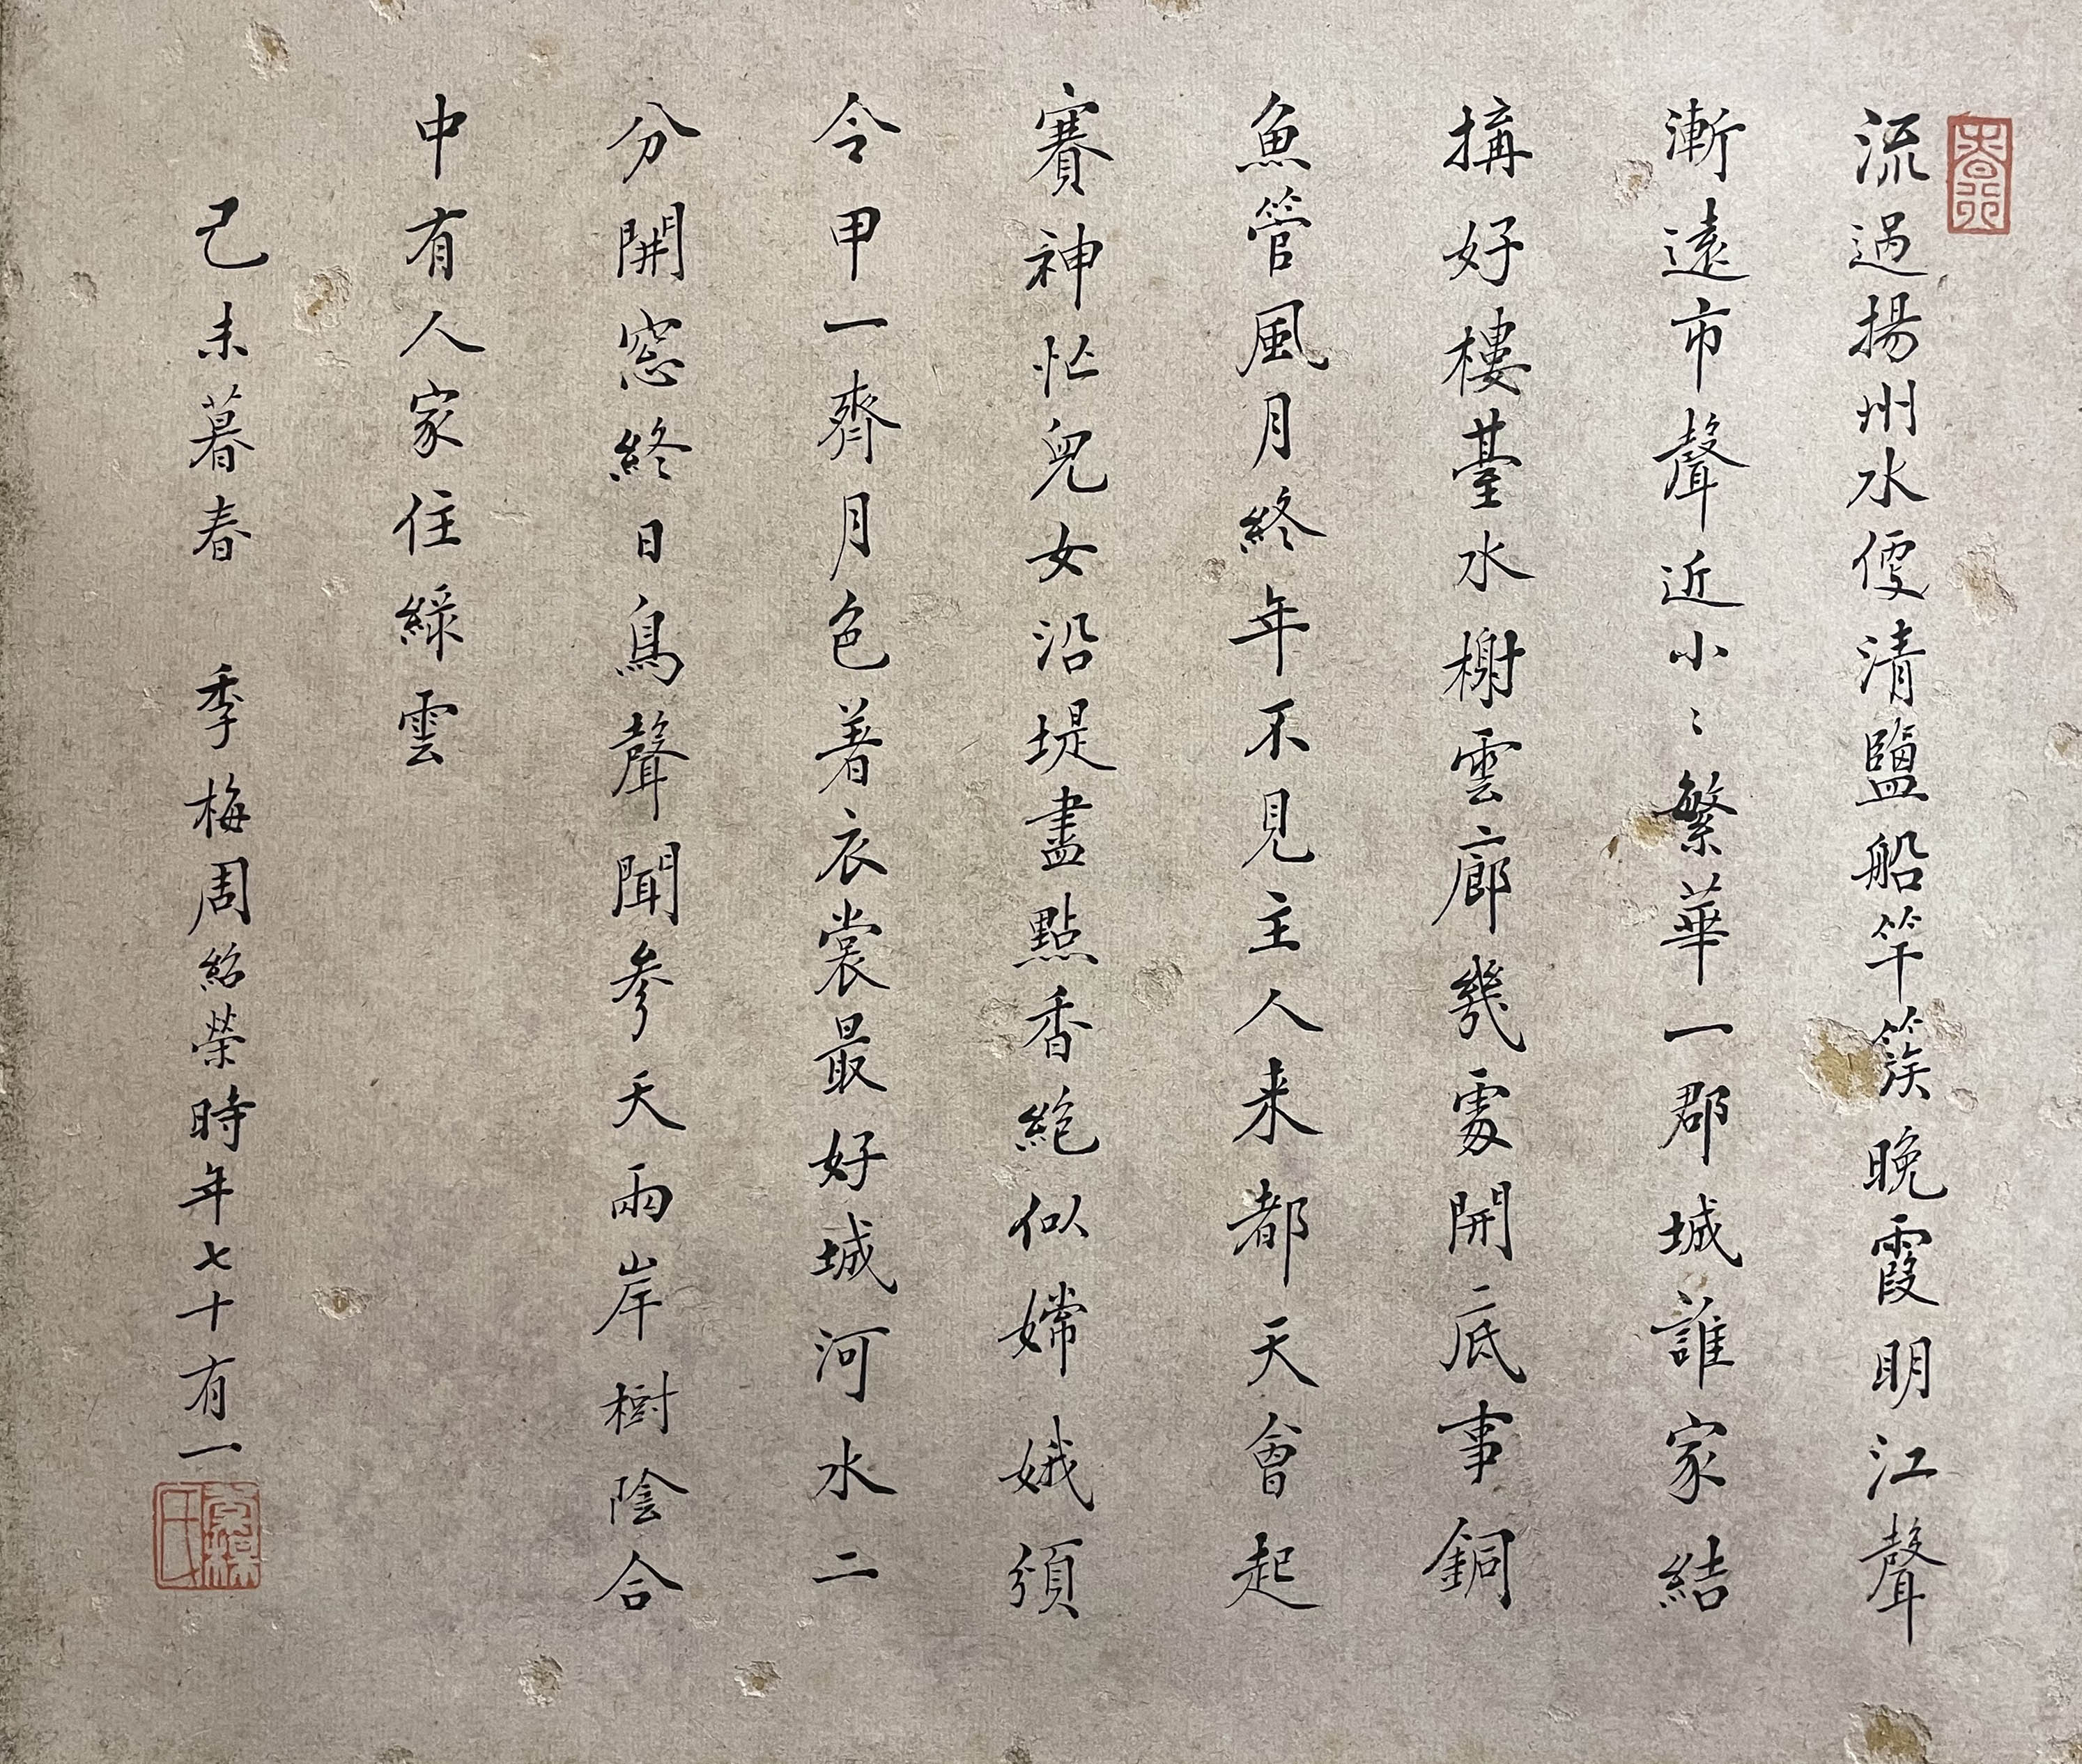 流過揚州水便清鹽船竿簇晚霞明江聲
漸遠市聲近小〻繁華一郡城誰家結
搆好樓臺水榭雲廊幾處開底事銅
魚管風月終年不見主人来都天會起
賽神忙兒女沿堤盡點香絶似嫦娥須
令甲一齊月色著衣裳最好城河水二
分開窓終日鳥聲聞参天兩岸樹陰合
中有人家住綠雲
己未暮春 季梅周紹榮時年七十有一